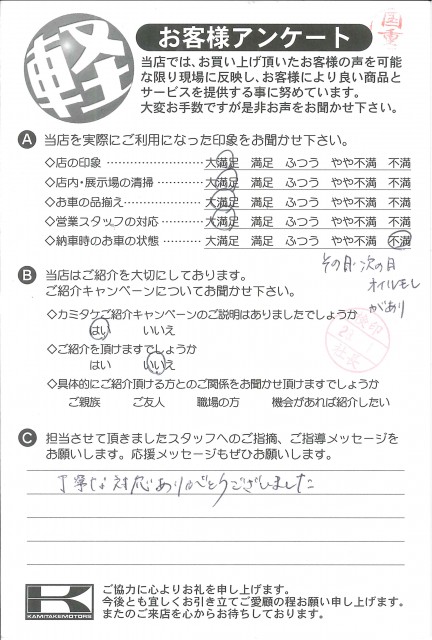 軽
お客様アンケート
当店では、お買い上げ頂いたお客様の声を可能
な限り現場に反映し、お客様により良い商品と
サービスを提供する事に努めています。
大変お手数ですが是非お声をお聞かせ下さい。
A 当店を実際にご利用になった印象をお聞かせ下さい。
◇店の印象 大満足 満足 ふつう やや不満 不満
◇店内・展示場の清掃 大満足 満足 ふつう やや不満 不満
◇お車の品揃え 大満足 満足 ふつう やや不満 不満
◇営業スタッフの対応 大満足 満足 ふつう やや不満 不満
◇納車時のお車の状態 大満足 満足 ふつう やや不満 不満
その日、次の日
オイルモレ
があり
B 当店はご紹介を大切にしております。
ご紹介キャンペーンについてお聞かせ下さい。
◇カミタケご紹介キャンペーンのご説明はありましたでしょうか
はい いいえ
◇ご紹介を頂けますでしょうか
はい いいえ
◇具体的にご紹介頂ける方とのご関係をお聞かせ頂けますでしょうか
ご親族 ご友人 職場の方 機会があれば紹介したい
社長
C 担当させて頂きましたスタッフへのご指摘、ご指導メッセージを
お願いします。応援メッセージもぜひお願いします。
丁寧な対応ありがとうございました
K
KAMITAKEMOTORS
ご協力に心よりお礼を申し上げます。
今後とも宜しくお引き立てご愛顧の程お願い申し上げます。
またのご来店を心からお待ちしております。